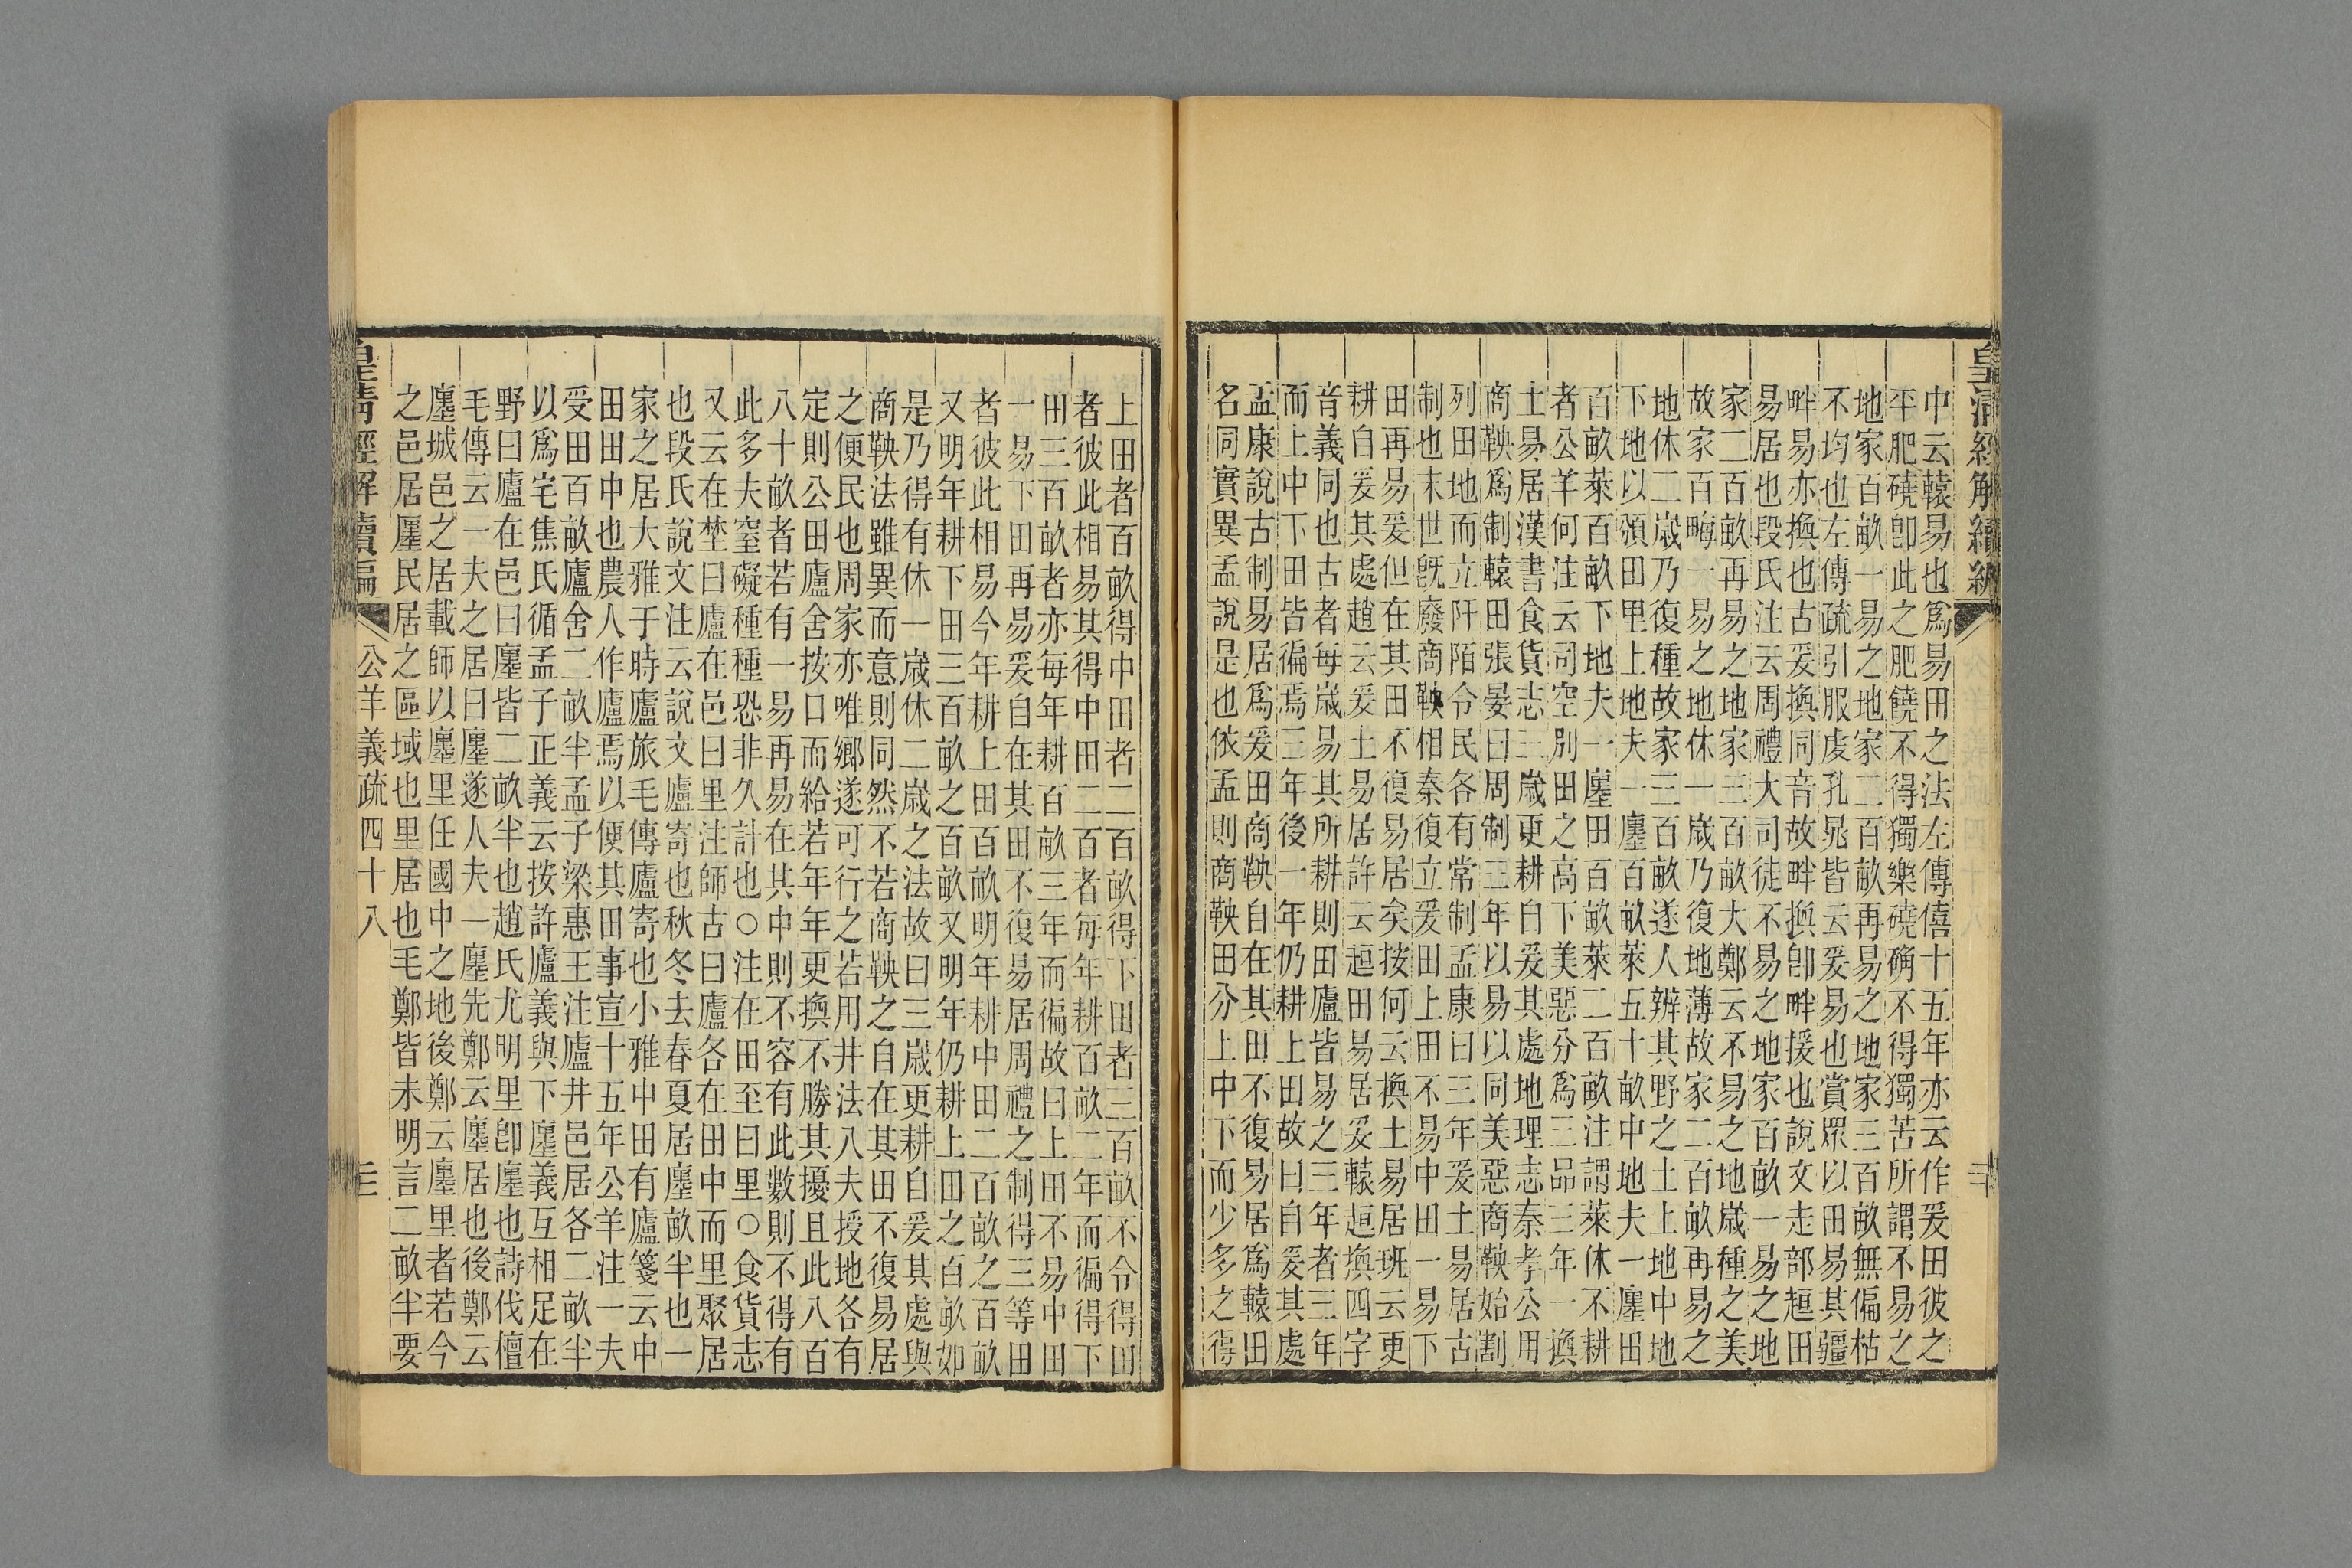 皇清經解續編
中云轅易也爲易田之法左傳僖十五年亦云作爰田彼之
平肥磽卽此之肥饒不得獨樂磽确不得獨苦所謂不易之
地家百畝一易之地家二百畝再易之地家三百畝無偏枯
不均也左傳疏引服虔孔晁皆云爰易也賞眾以田易其疆
畔易亦換也古爰換同音故畔換卽畔援也說文走部趄田
易居也段氏注云周禮大司徒不易之地家百畝一易之地
家二百畝再易之地家三百畝大鄭云不易之地歲種之美
故家百畮一易之地休一歲乃復地薄故家二百畝再易之
地休二歲乃復種故家三百畝遂人辨其野之土上地中地
下地以頒田里上地夫一廛百畝萊五十畝中地夫一廛田
百畝萊百畝下地夫一廛田百畝萊二百畝注謂萊休不耕
者公羊何注云司空別田之高下美惡分爲三品三年一換
土易居漢書食貨志三歲更耕自爰其處地理志秦孝公用
商鞅爲制轅田張晏曰周制三年以易以同美惡商鞅始割
列田地而立阡陌令民各有常制孟康曰三年爰土易居古
制也末世旣廢商鞅相秦復立爰田上田不易中田一易下
田再易爰但在其田不復易居矣按何云換土易居班云更
耕自爰其處趙云爰土易居許云趄田易居爰轅趄換四字
音義同也古者每歲易其所耕則田廬皆易之三年者三年
而上中下田皆徧焉三年後一年仍耕上田故曰自爰其處
孟康說古制易居爲爰田商鞅自在其田不復易居爲轅田
名同實異孟說是也依孟則商鞅田分上中下而少多之得
上田者百畝得中田者二百畝得下田者三百畝不令得田
者彼此相易其得中田二百者每年耕百畝二年而徧得下
田三百畝者亦每年耕百畝三年而徧故曰上田不易中田
一易下田再易爰自在其田不復易居周禮之制得三等田
者彼此相易今年耕上田百畝明年耕中田二百畝之百畝
又明年耕下田三百畝之百畝又明年仍耕上田之百畝如
是乃得有休一歲休二歲之法故曰三歲更耕自爰其處與
商鞅法雖異而意則同然不若商鞅之自在其田不復易居
之便民也周家亦唯鄉遂可行之若用井法八夫授地各有
定則公田廬舍按口而給若年年更換不勝其擾且此八百
八十畝者若有一易再易在其中則不容有此數則不得有
此多夫窒礙種種恐非久計也○注在田至曰里○食貨志
又云在埜曰廬在邑曰里注師古曰廬各在田中而里聚居
也段氏說文注云說文廬寄也秋冬去春夏居廛畝半也一
家之居大雅于時廬旅毛傳廬寄也小雅中田有廬箋云中
田田中也農人作廬焉以便其田事宣十五年公羊注一夫
受田百畝廬舍二畝半孟子梁惠王注廬井邑居各二畝半
以爲宅焦氏循孟子正義云按許廬義與下廛義互相足在
野曰廬在邑曰廛皆二畝半也趙氏尤明里卽廛也詩伐檀
毛傳云一夫之居曰廛遂人夫一廛先鄭云廛居也後鄭云
廛城邑之居載師以廛里任國中之地後鄭云廛里者若今
之邑居廛民居之區域也里居也毛鄭皆未明言二畝半要
皇清經解續編 公羊義疏四十八